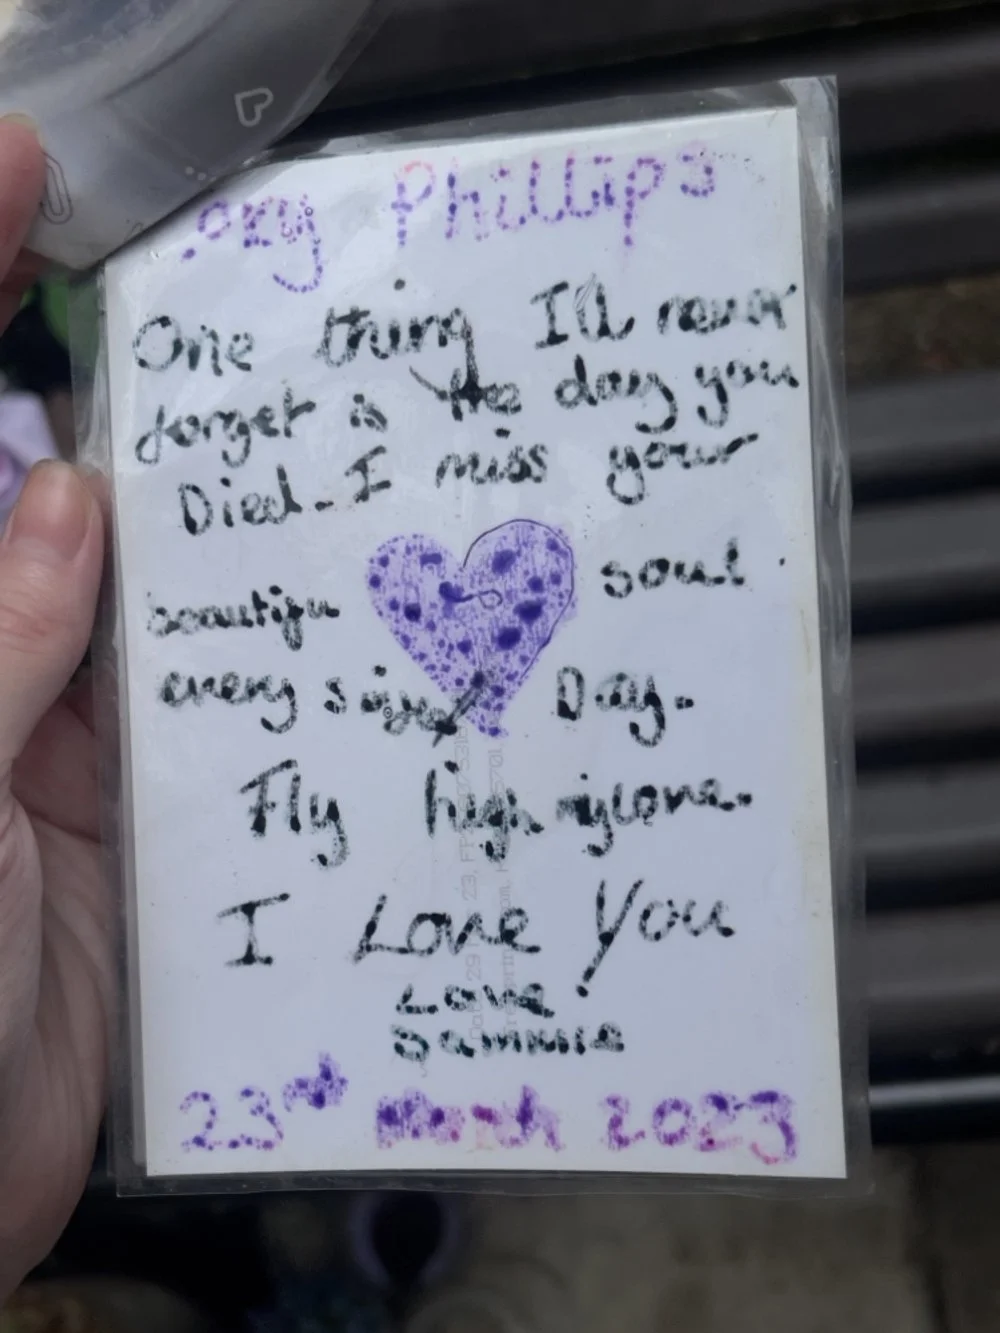 Phillips
One thing I'll never
forget is the day you
Died. I miss your
beautiful soul.
every single Day.
Fly high my love.
I Love You
Love
Sammie
23rd March 2023